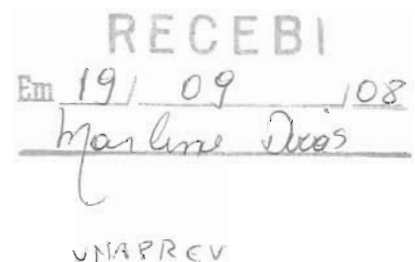 RECEBI
Em 19/ 09 /08
Marlene
UNAPREV